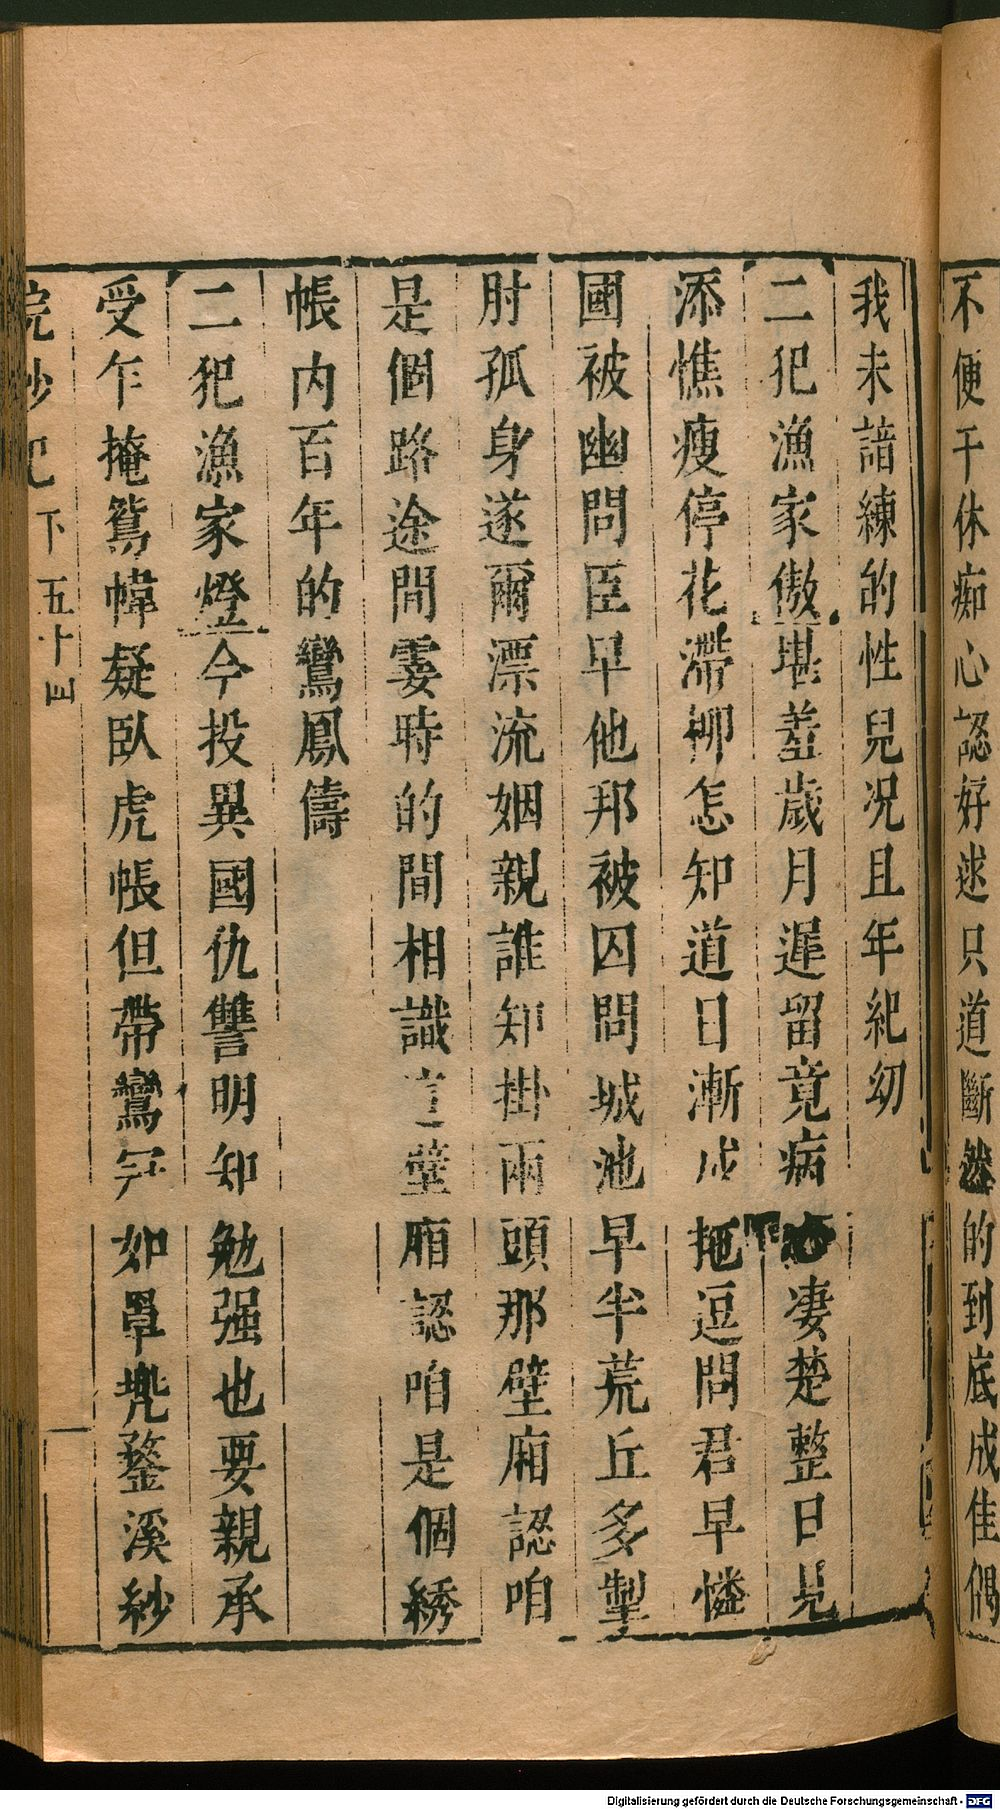 不便干休痴心認好逑只道斷然的到底成佳偶
我未諳練的性兒况且年紀幼
二犯漁家傲堪羞歲月遲留竟病心凄楚整日見
添憔瘦停花滯柳怎知道日漸成拖逗問君早憐
國被幽問臣早他邦被囚問城池早半荒丘多掣
肘孤身遂爾漂流姻親誰知掛兩頭那壁廂認咱
是個路途間霎時的間相識這壁廂認咱是個綉
帳内百年的鸞鳳儔
二犯漁家燈今投異國仇讐明知勉强也要親承
受乍掩鴛幃疑臥虎帳但帶鸞冠如罩兠鍪溪紗
浣紗記 下 五十四
Digitalisierung gefördert durch die Deutsche Forschungsgemeinschaft - DFG